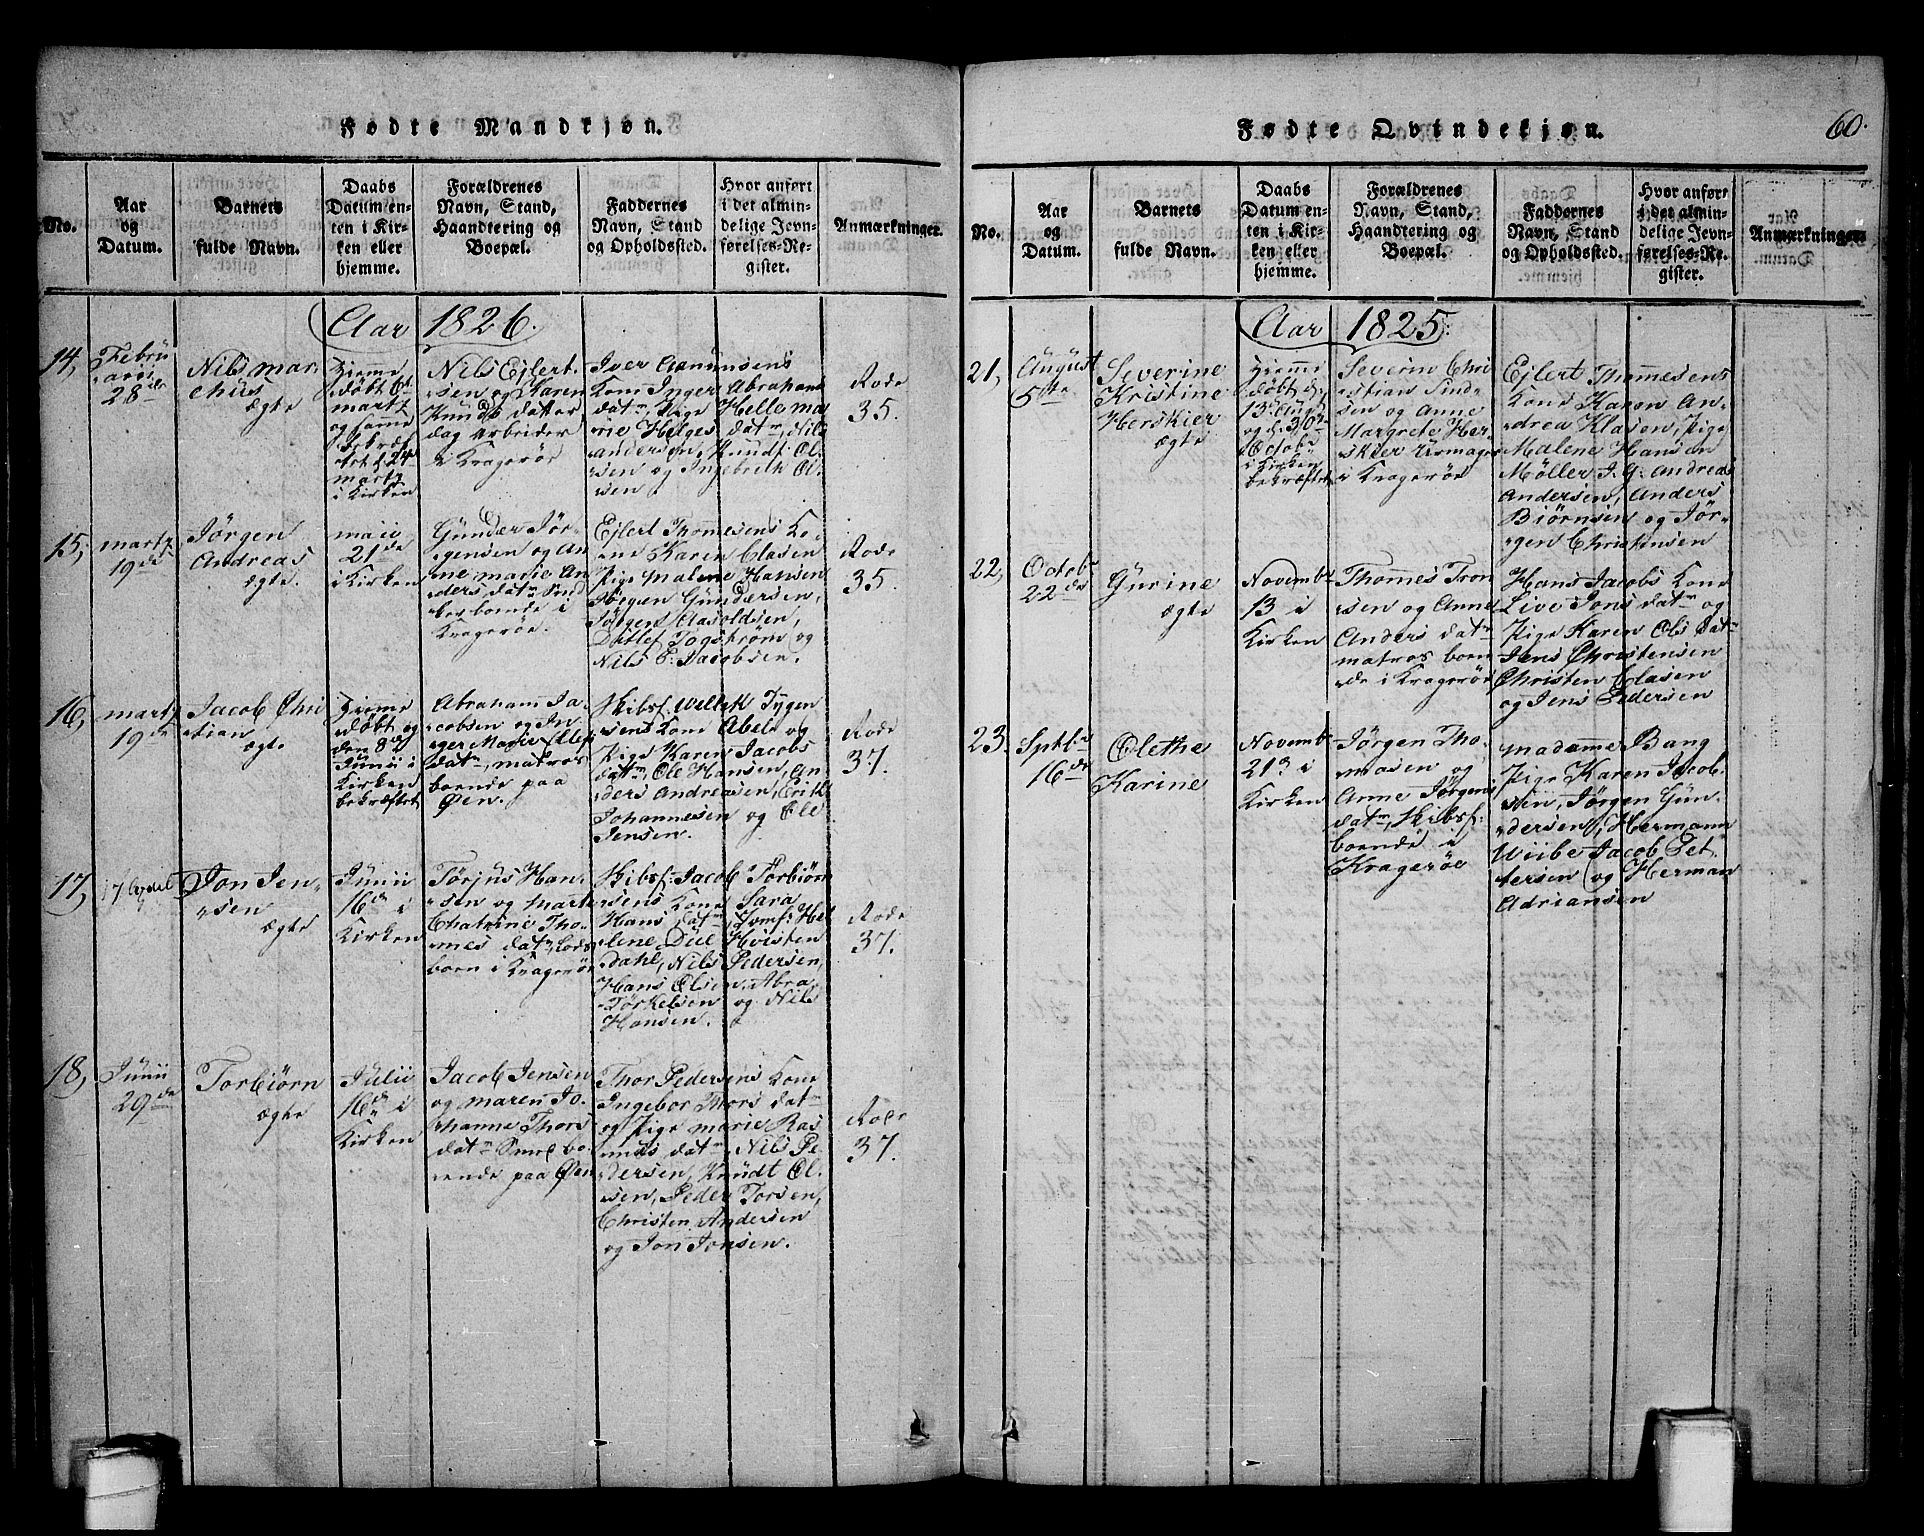 Fødte Mandkjøn.
No.
Aar
og
Datum.
Barnets
fulde Navn.
Daabs
Datum en-
ten i Kir-
ken eller
hjemme.
Forældrenes
Navn, Stand,
Haandtering og
Boepæl.
Faddernes
Navn, Stand
og Opholdssted.
Hvor anført
i det almin-
delige Jevn-
førelses-Re-
gister.
Anmærkninger.
Aar 1826.
14,
Febru
arii
28de
Nils mar-
chus
ægte
Hiemme
døbt 6t
martz
og samme
bekræf-
tet d. 24de
martz
i Kirken
Nils Ejlert-
sen og Karen
Knuds dater
dag arbeider
i Kragerøe
Iver Amunsens
Kone Inger Abrahams
datr, Pige Helle ma
rne Helges datr, Nils
andersen, Knudt Ol-
sen og Ingebrekt Ol-
sen
Rode
35.
15,
martz
19de
Jørgen
Andreas
ægte.
maii
21de
i Kirken
Gunder Jør-
gensen og An
ne marie An
ders datr
boende i
Kragerøe.
Ejlert Thommesens Ko-
ne Karen Clasen
Pige malene Hansen
Jørgen Gundersen,
Jørgen Aasoldsen,
Ditlef Togstrøm og
Nils P: Jacobsen.
Rode
35.
16,
martz
19de
Jacob Chri
stian
ægte
Hieme
døbt og
den 8de
Junii i
Kirken
bekræftet
Abraham Ja-
cobsen og In-
ger Marie Ellef
datr, matros
boende paa
Øen.
Skibsf. Tygen
sens Kone Abel og
Pige Karen Jacobs
datr, Ole Hansen, An
ders Andreasen, Erik
Johannesen og Ole
Jensen.
Rode
37.
17,
17 April
Jon Jen-
sen
ægte
Junii
16de i
Kirken
Torjus Han-
sen og Mart
Chatrine Tho-
mes datr, Lods
boen i Kragerøe
Skibsf: Jacob Torbiørn
sens Kone Sara
Hans datr, Jomf: He
lene Due Hvisten
Dahl, Nils Pedersen,
Hans Olsen, Abra.
Torkelsen og Nils
Hansen.
Rode
37.
18,
Junii
29de
Torbiørn
ægte
Julii
16de i
Kirken
Jacob Jensen
og maren Jo-
hanne Thors
datr Smed bo-
ende paa Øen
Thor Pedersens Kone
Ingebor Thors datr
og Pige marie Ras
muds datr Nils Pe-
dersen, Knudt Ol-
sen, Peder Torsen,
Christen Andersen
og Jon Jonsen.
Rode
37.
Fødte Qvindekjøn.
60.
No.
Aar
og
Datum.
Barnets
fulde Navn.
Daabs
Datum en-
ten i Kir-
ken eller
hjemme.
Forældrenes
Navn, Stand,
Haandtering og
Boepæl.
Faddernes
Navn, Stand
og Opholdssted.
Hvor anført
i det almin-
delige Jevn-
førelses-Re-
gister.
Anmærkninger.
Aar 1825.
21,
August
5te
Severine
Kristine
Herskier
ægte
Hiemme
døbt d.
13. Aug.
og d. 30te
Octobr
i Kirken
bekræftet
Severin Chri
stian Lind-
sen og Anne
Margrete Her-
skier Urmager
i Kragerøe
Ejlert Thommesens
Kone Karen An-
drea Klasen, Pige
Malene Hansen
Møller J. G. Andreas
Andersen, Anders
Biørnsen og Jør-
gen Christensen
22,
Octobr
22de
Gurine
ægte
Novembr
13 i
Kirken
Thommes Tron
sen og Anne
Anders datr
matros boen
de i Kragerøe
Hans Jacobs Kone
Live Jons datr og
Pige Karen Ols datr
Jens Christensen
Christen Clasen
og Jens Pedersen
23.
Sptbr
16de
Olethe
Karine
Novembr
21de i
Kirken
Jørgen Tho-
masen og
Anne Jørgens
datr, Skibsf:
boende i
Kragerøe
madame Bang
Pige Karen Jacob.
Nii, Jørgen Gun-
dersen, Hermann
Wiibe Jacob Pet-
tersen og Herman
Adriansen